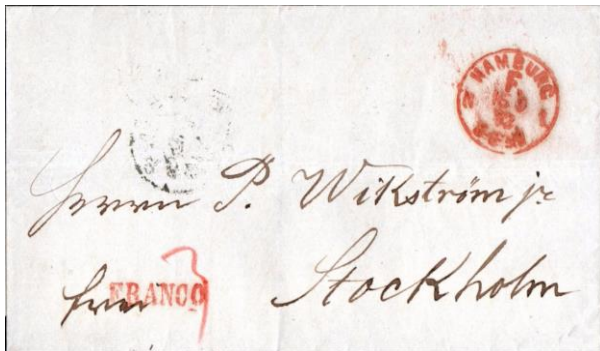 HAMBURG
F
Herrn P. Wikström jr
frei FRANCO
Stockholm